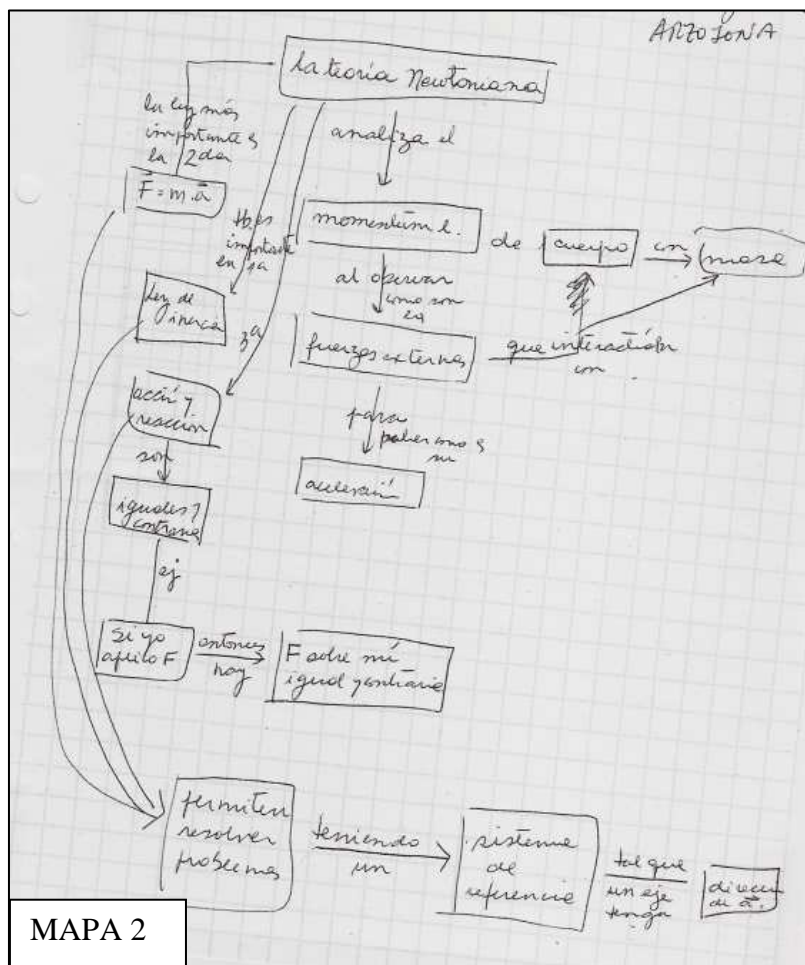 ARZOJONA
La teoría Newtoniana
la ley más
importante es
la 2da
F = m.a
analiza el
momentum l.
de
cuerpo
con
masa
tb. es
importante
en 1a
Ley de
inercia
3ª
al observar
como son
las
fuerzas externas
que interactúan
con
acción y
reacción
para
saber como es
su
aceleración
son
iguales y
contrarias
ej
Si yo
aplico F
entonces
hay
F sobre mí
igual y contraria
permiten
resolver
problemas
teniendo
un
sistema
de
referencia
tal que
un eje
tenga
direcc
de a.
MAPA 2